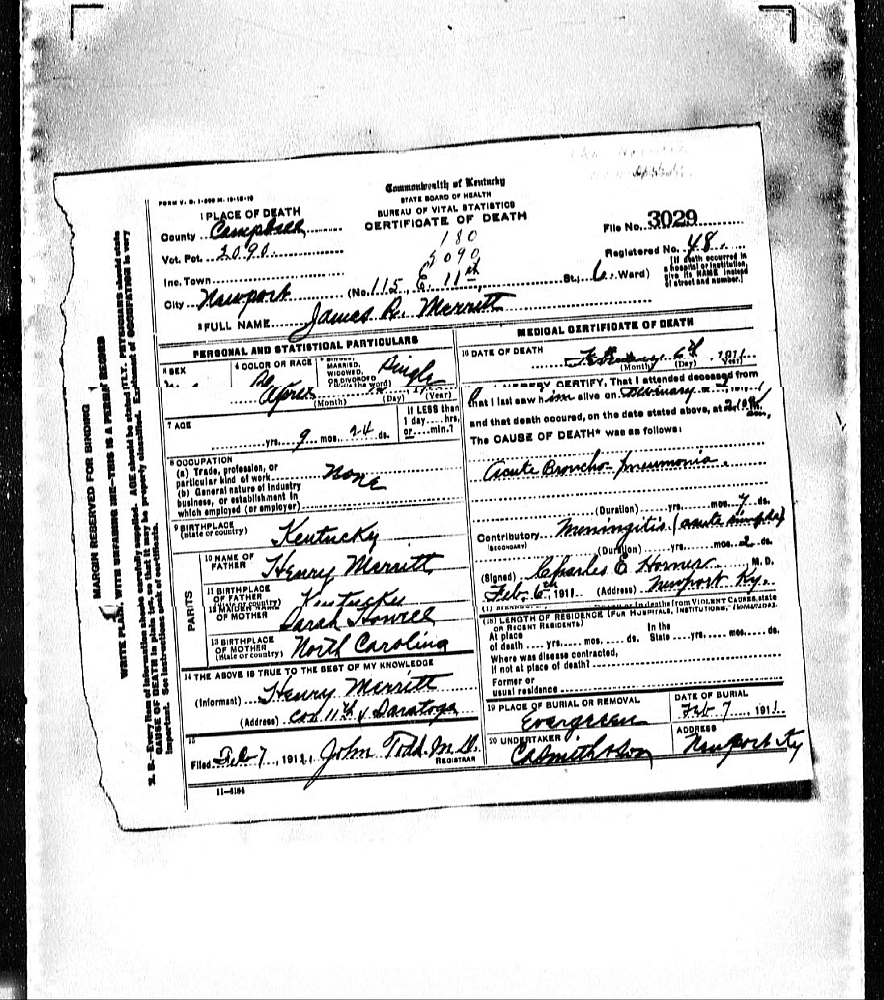 Commonwealth of Kentucky
STATE BOARD OF HEALTH
BUREAU OF VITAL STATISTICS
CERTIFICATE OF DEATH
FORM V. S. 1
1 PLACE OF DEATH
County Campbell
Vot. Pct. 2090
Inc. Town
City Newport (No. 115 E. 11th St.; 6 Ward)
180
5090
File No. 3029
Registered No. 48.
[If death occurred in
a hospital or institution,
give its NAME instead
of street and number.]
2 FULL NAME James R. Merritt
PERSONAL AND STATISTICAL PARTICULARS
3 SEX
4 COLOR OR RACE
MARRIED,
WIDOWED,
OR DIVORCED
(Write the word) Single
April
(Month) (Day) (Year)
7 AGE
yrs. 9 mos. 24 ds.
If LESS than
1 day hrs.
or min.?
8 OCCUPATION
(a) Trade, profession, or
particular kind of work None
(b) General nature of industry
business, or establishment in
which employed (or employer)
9 BIRTHPLACE
(State or country) Kentucky
PARENTS
10 NAME OF
FATHER Henry Merritt
11 BIRTHPLACE
OF FATHER
(State or country) Kentucky
12 MAIDEN NAME
OF MOTHER Sarah Howell
13 BIRTHPLACE
OF MOTHER
(State or country) North Carolina
14 THE ABOVE IS TRUE TO THE BEST OF MY KNOWLEDGE
(Informant) Henry Merritt
(Address) Cor 11th & Saratoga
15
Filed Feb 7, 1911, John Todd M.D.
REGISTRAR
11-6184
MEDICAL CERTIFICATE OF DEATH
16 DATE OF DEATH February 6th, 1911
(Month) (Day) (Year)
HEREBY CERTIFY, That I attended deceased from
that I last saw him alive on February
and that death occured, on the date stated above, at
The CAUSE OF DEATH* was as follows:
Acute Broncho-pneumonia.
(Duration) yrs. mos. 7 ds.
Contributory Meningitis (acute simple)
(SECONDARY)
(Duration) yrs. mos. 2 ds.
(Signed) Charles E Horner M.D.
Feb. 6th, 1911 (Address) Newport Ky.
in deaths from VIOLENT CAUSES, state
(18) LENGTH OF RESIDENCE (FOR HOSPITALS, INSTITUTIONS, TRANSIENTS,
OR RECENT RESIDENTS)
At place
of death yrs. mos. ds. In the State yrs. mos. ds.
Where was disease contracted,
if not at place of death?
Former or
usual residence
19 PLACE OF BURIAL OR REMOVAL
Evergreen
DATE OF BURIAL
Feb 7, 1911
20 UNDERTAKER
C A Smith & Son
ADDRESS
Newport Ky
MARGIN RESERVED FOR BINDING
WRITE PLAINLY, WITH UNFADING INK—THIS IS A PERMANENT RECORD
N. B.—Every item of information should be carefully supplied. AGE should be stated EXACTLY. PHYSICIANS should state
CAUSE OF DEATH in plain terms, so that it may be properly classified. Exact statement of OCCUPATION is very
important. See instructions on back of certificate.